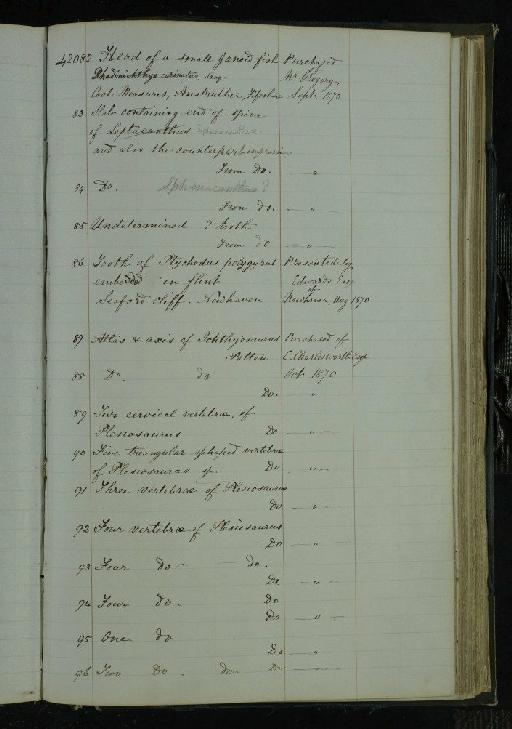 42082 Head of a small ganoid fish Purchased
Rhadinichthys carinatus Mr Gregory
Coal Measures, Anstruther, Sept. 1870
83 Slab containing end of spine
of Leptacanthus
and also the counterpart impression
From Do. "
84 Do. Sphenacanthus?
From do. "
85 Undetermined ? Teeth
From do "
86 Tooth of Ptychodus polygyrus Presented by
embedded in flint Edwards Esq
of
Seaford Cliff. Newhaven Newhaven Aug 1870
87 Atlas & axis of Ichthyosaurus Purchased of
Potton C. Charlesworth Esq
88 Do. do Oct. 1870
Do. "
89 Five cervical vertebrae, of
Plesiosaurus Do "
90 Five triangular shaped vertebrae
of Plesiosaurus sp. Do. "
91 Three vertebrae of Plesiosaurus
Do "
92 Four vertebrae of Plesiosaurus
Do "
93 Four do do.
Do "
94 Four do. Do
Do "
95 One do
Do "
96 Two Do. do Do